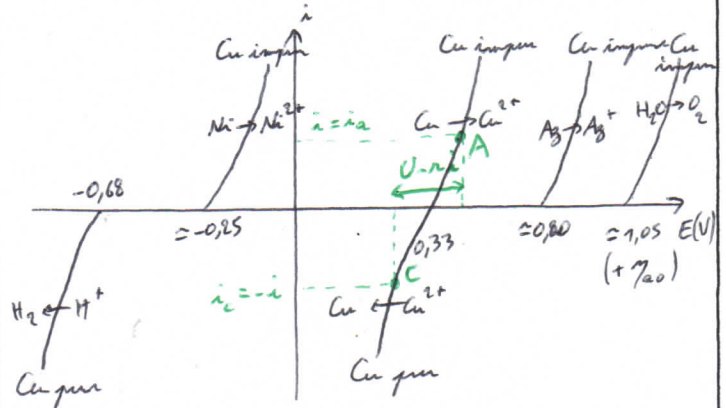 i
Cu impur
Cu impur
Cu impur
Cu impur
Ni → Ni²⁺
i = iₐ
Cu → Cu²⁺
Ag → Ag⁺
H₂O → O₂
A
U - ri
-0,68
≃ -0,25
0,33
≃ 0,80
≃ 1,05
(+ ηₐₒ)
E(V)
H₂ ← H⁺
i_c = -i
C
Cu ← Cu²⁺
Cu pur
Cu pur